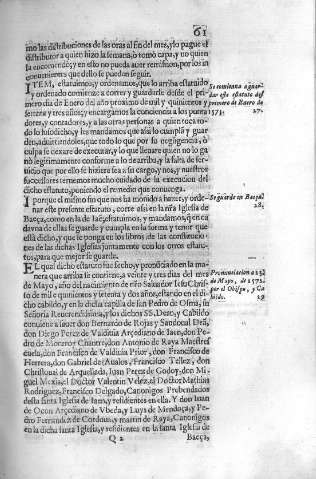 61
mo las distribuciones de las oras al fin del mes, y lo pague el
distribuidor a quien hizo la semana, o tomo capa, y no quien
la encomendo; y en ello no pueda auer remission, por los in
conuenientes que dello se pueden seguir.
ITEM, estatuimos, y ordenamos, que lo arriba estatuido
y ordenado comience a correr y guardarse desde el pri-
mero dia de Enero del año proximo de mil y quinientos y
setenta y tres años, y encargamos la conciencia a los punta
dores, y contadores, y a las otras personas a quien toca to-
do lo susodicho, y les mandamos que assi lo cumplã y guar
den, aduirtiendoles, que todo lo que por su negligencia, o
culpa se dexare de executar, y lo que lleuare quien no lo ga
nò legitimamente conforme a lo de arriba, y la falta de ser-
uicio que por ello se hiziere sea a su cargo, y nos, y nuestros
successores ternemos mucho cuidado de la execucion del
dicho estatuto, poniendo el remedio que conuenga.
I porque el mismo fin que nos ha mouido a hazer, y orde-
nar este presente estatuto, corre assi en la nra Iglesia de
Baeça, como en la de Iaẽ, estatuimos, y mandamos, q̃ en ca
da vna de ellas se guarde y cumpla en la forma y tenor que
està dicho, y que se ponga en los libros de las constitucio-
nes de las dichas Iglesias juntamente con los otros estatu-
tos, para que mejor se guarde.
EL qual dicho estatuto fue fecho y pronũciado en la ma-
nera que arriba se contiene, a veinte y tres dias del mes
de Mayo, año del nacimiento de nro Saluador Iesu Christo
de mil e quinientos y setenta y dos años, estando en el di-
cho cabildo, y en la dicha capilla de san Pedro de Osma, su
Señoria Reuerendissima, y los dichos SS. Deã, y Cabildo
conuiene a sauer don Fernando de Rojas y Sandoual Deã,
don Diego Perez de Valdiuia Arçediano de Iaen, don Pe-
dro de Moncroy Chantre, don Antonio de Raya Maestres
cuela, don Francisco de Valdiuia Prior, don Francisco de
Herrera, don Gabriel de Aualos, Francisco Tellez, don
Christoual de Arquellada, Iuan Perez de Godoy, don Mi
guel Mexia, el Doctor Valentin Velez, el Doctor Mathias
Rodriguez, Francisco Delgado, Canonigos Prebendados
desta santa Iglesia de Iaen, y residentes en ella. Y don Iuan
de Ocon Arçediano de Vbeda, y Luys de Mendoça, y Pe-
dro Fernandez de Cordoua, y martin de Raya, Canonigos
en la dicha santa Iglesia, y residentes en la santa Iglesia de
Q 2
Baeça,
Se comience a guar-
dar este estatuto des
primero de Enero de
1573.
27.
Se guarde en Baeça.
28.
Pronunciacion a 23
de Mayo, de 1572
por el Obispo, y Ca
bildo.
29